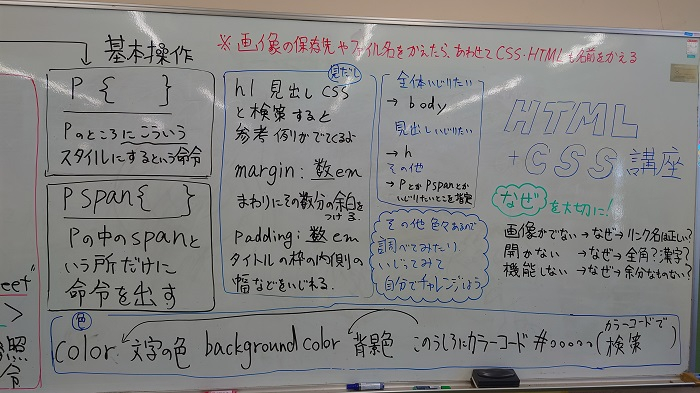 基本操作
※画像の保存先やファイル名をかえたら、あわせてCSS・HTMLも名前をかえる
P {　　}
Pのところにこういう
スタイルにするという命令
P span{　　}
Pの中のspanと
いう所だけに
命令を出す
見だし
h1 見出し css
と検索すると
参考例がでてくるよ
margin: 数em
まわりにその数分の余白を
つける
padding: 数em
タイトルの枠の内側の
幅などをいじれる
全体いじりたい
→ body
見出しいじりたい
→ h
その他
→ PとかP spanとか
いじりたいとこを指定
その他色々あるので
調べてみたり
いじってみて
自分でチャレンジしよう
HTML
+CSS講座
なぜを大切に!
画像がでない→なぜ→リンク名は正しい?
開かない→なぜ→全角?漢字?
機能しない→なぜ→余分なものない?
eet"
>
照
令
色
color: 文字の色 background color 背景色 このうしろにカラーコード #oooooo(カラーコードで検索)